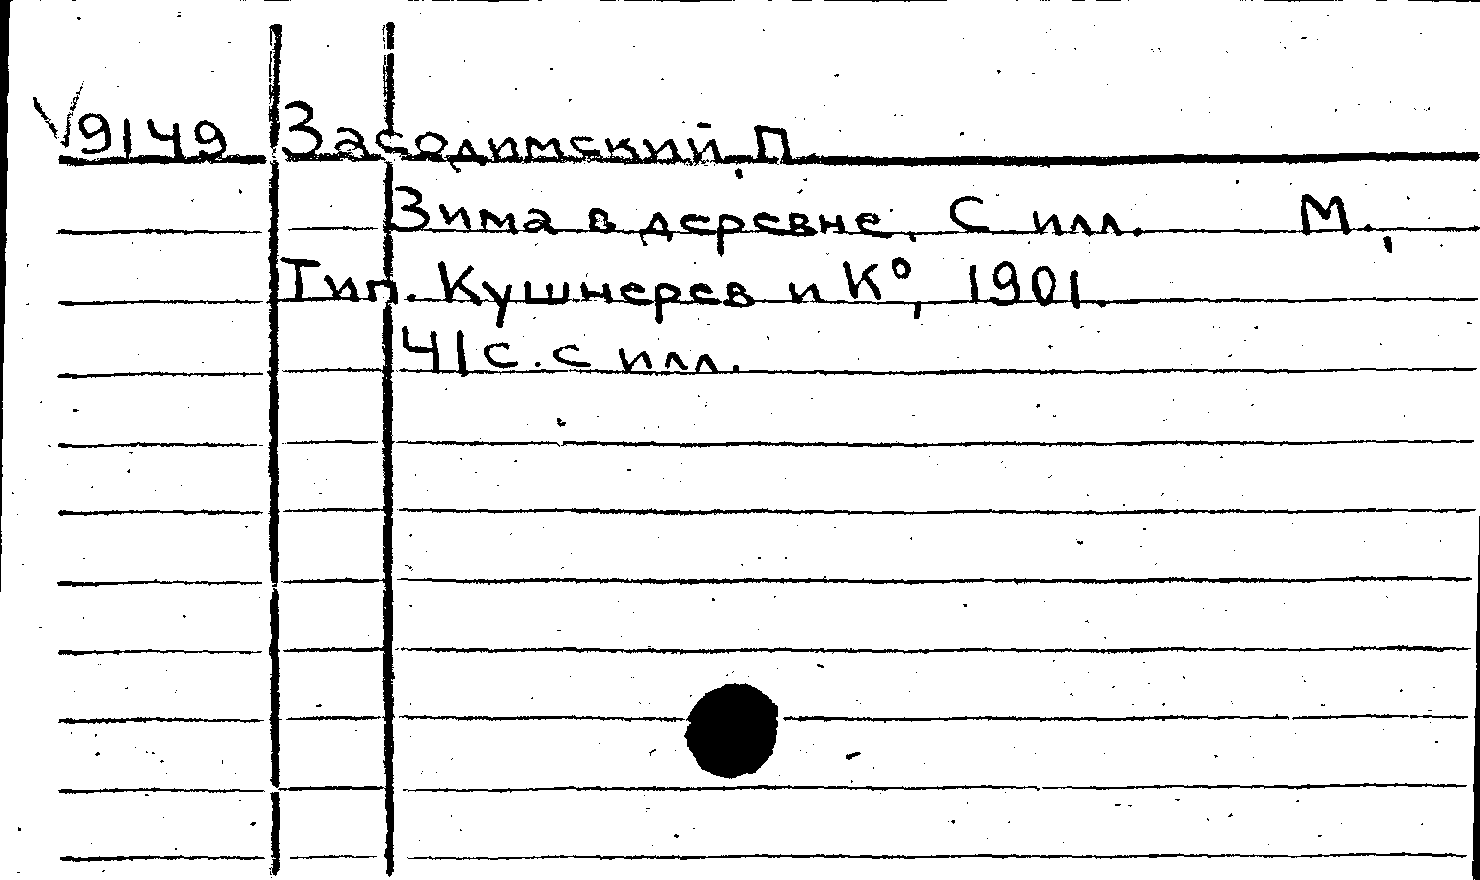 √9149 Засодимский, П.
Зима в деревне. С илл. М.,
Тип. Кушнерев и К°, 1901.
41 с. с илл.